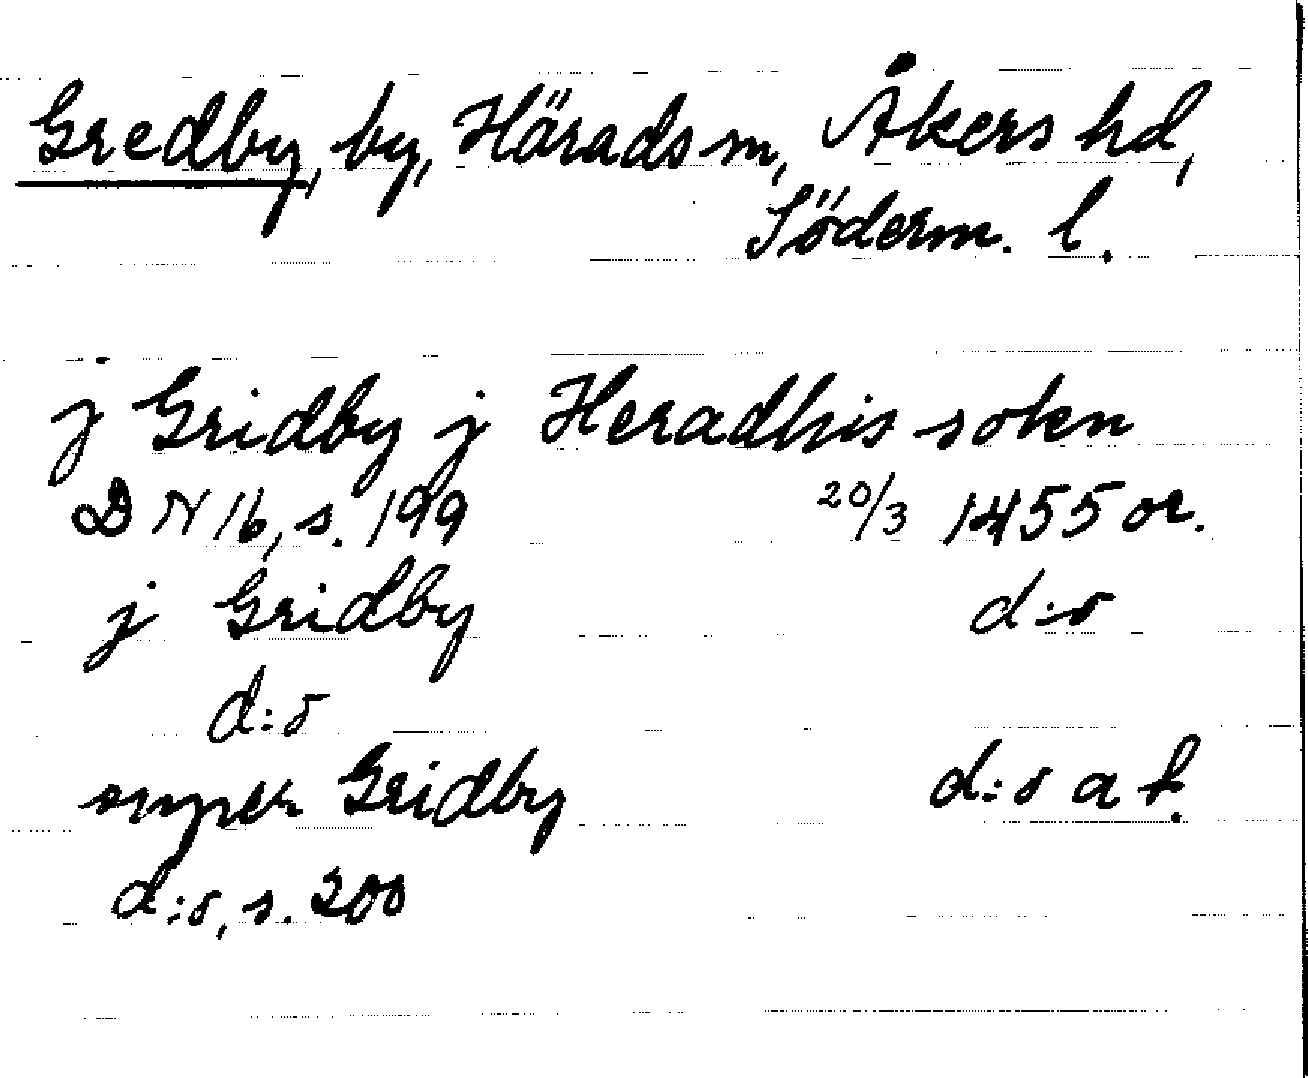 Gredby, by, Härads sn, Åkers hd,
Söderm. l.
j Gridby j Heradhis sokn
DN 16, s. 199 20/3 1455 or.
j Gridby d:o
d:o
super Gridby d:o a f.
d:o, s. 200